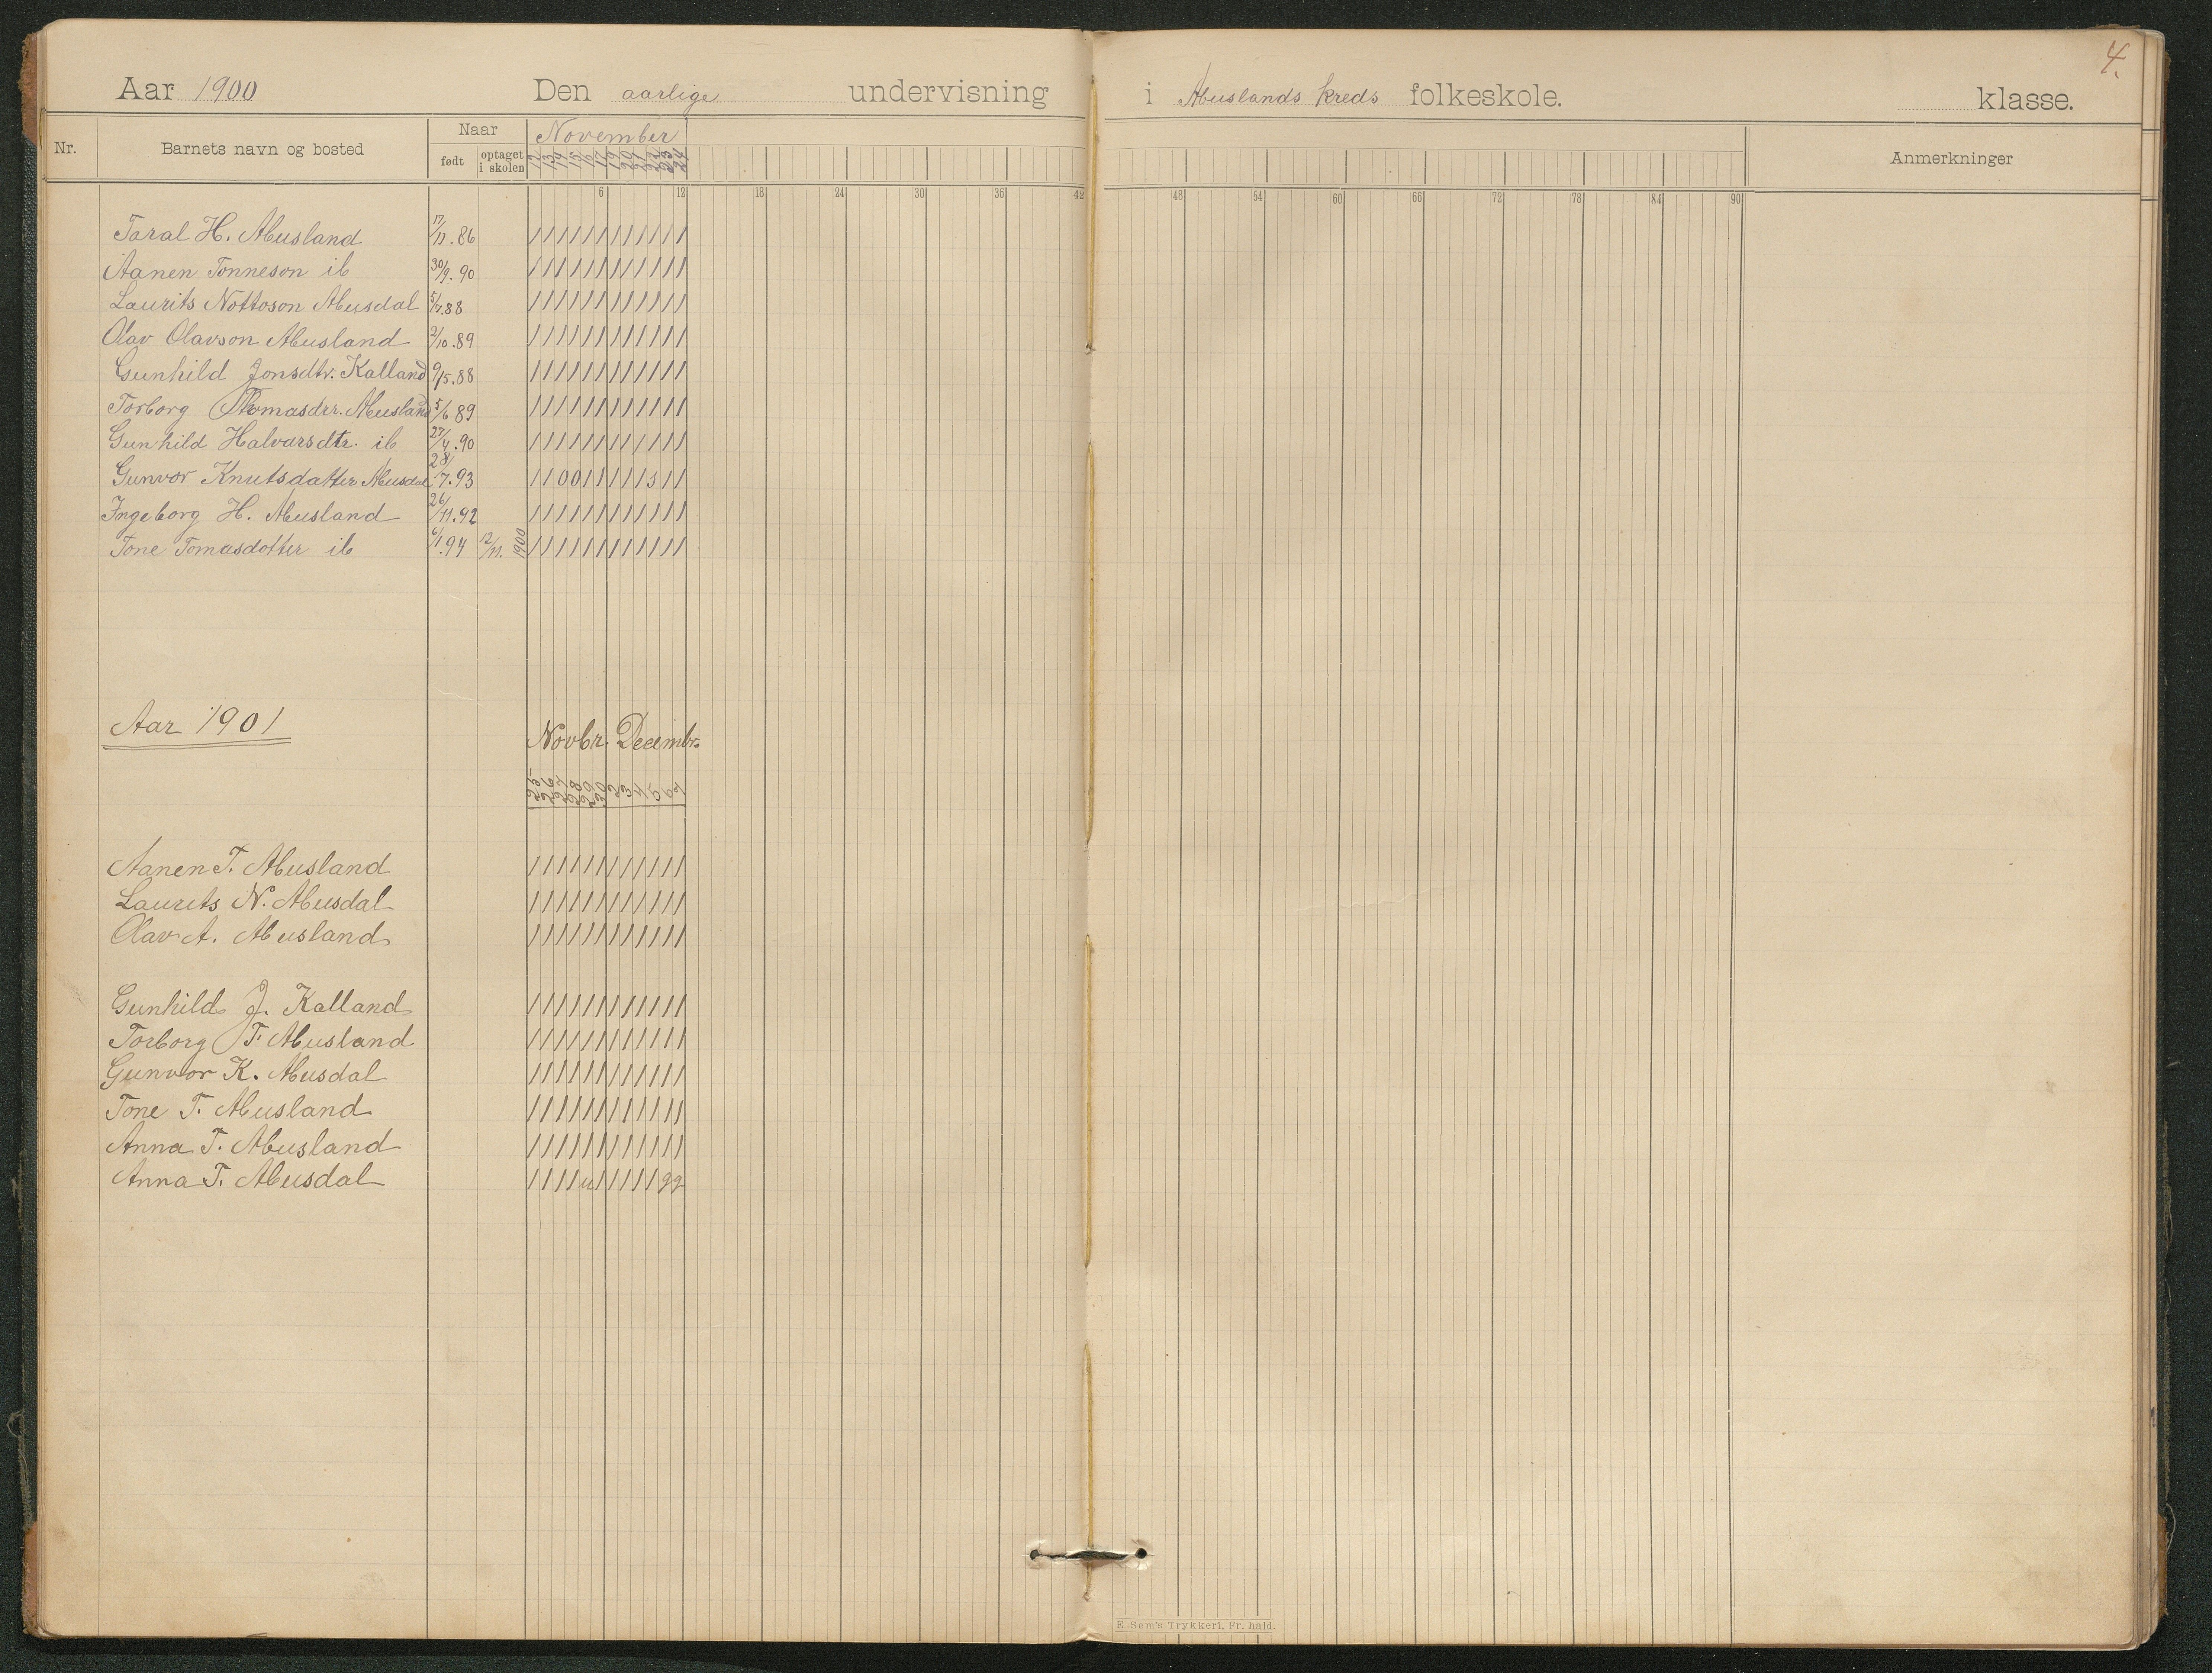 4.
Aar 1900 Den aarlige undervisning i Abuslands kreds folkeskole. klasse.
Nr. Barnets navn og bosted Naar født optaget i skolen November Anmerkninger
12 13 14 15 16 17 19 20 21 22 23 24
6 12 18 24 30 36 42 48 54 60 66 72 78 84 90
Taral H. Abusland 17/11.86 / / / / / / / / / / / /
Aanen Tonneson ib 30/9.90 / / / / / / / / / / / /
Laurits Nottoson Abusdal 5/7.88 / / / / / / / / / / / /
Olav Olavson Abusland 2/10.89 / / / / / / / / / / / /
Gunhild Jonsdtr. Kalland 9/5.88 / / / / / / / / / / / /
Torborg Tomasdtr. Abusland 5/6 89 / / / / / / / / / / / /
Gunhild Halvarsdtr. ib 27/4.90 / / / / / / / / / / / /
Gunvor Knutsdatter Abusdal 28/7.93 / / 0 0 / / / / / s / /
Ingeborg H. Abusland 26/11.92 / / / / / / / / / / / /
Tone Tomasdotter ib 6/1.94 12/11. 1900 / / / / / / / / / / / /
Aar 1901 Novbr. Decembr.
Aanen T. Abusland / / / / / / / / / / / /
Laurits N. Abusdal / / / / / / / / / / / /
Olav A. Abusland / / / / / / / / / / / /
Gunhild J. Kalland / / / / / / / / / / / /
Torborg T. Abusland / / / / / / / / / / / /
Gunvor K. Abusdal / / / / / / / / / / / /
Tone T. Abusland / / / / / / / / / / / /
Anna T. Abusland / / / / / / / / / / / /
Anna T. Abusdal / / / / u / / / / / g g
E. Sem's Trykkeri, Fr. hald.